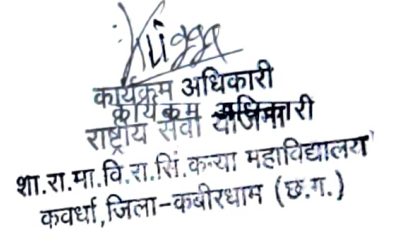 कार्यक्रम अधिकारी
कार्यक्रम अधिकारी
राष्ट्रीय सेवा योजना
शा.रा.मा.वि.रा.सिं.कन्या महाविद्यालय
कवर्धा,जिला-कबीरधाम (छ.ग.)